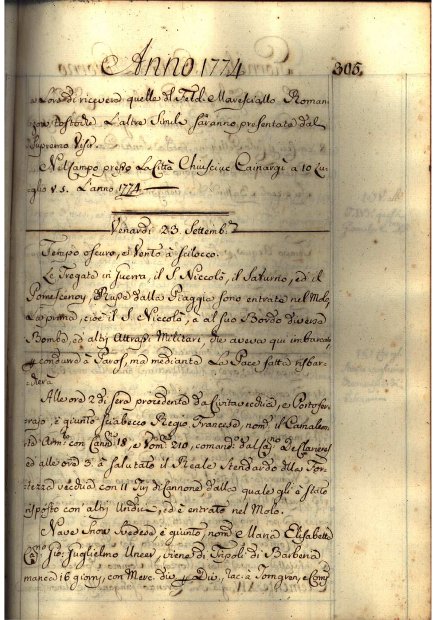 Anno 1774 305
di ricevere quelle del Feld Maresciallo Roman
L'altre Simili saranno presentate dal
Supremo Visir
Nel Campo presso La Città Chiusciue Cainargi à 10 Lu:
glio v s. L'anno 1774
Venardi 23. Settemb.
Tempo oscuro, e Vento à Scilocco.
Le Fregate in Guerra, il S. Niccolò, il Saturno, ed il
Russe dalla Piaggia sono entrate nel Molo,
La prima, cioè il S. Niccolò, à al suo Bordo diverse
Bombe, ed altri Attrassi Militari, che aveva qui imbarcati
condurre à Paros, ma mediante La Pace fatta risbar:
cherà.
Alle ore 2 di sera procedente da Civitavecchia, e Portofer:
rajo, è giunto Sciabecco Regio Francese, nom. il Camaleon
con Can. 18, e 210, comand. dal
ed alle ore 3 à salutato il Reale Stendardo della For:
tezza vecchia con 11 Tiri di Cannone dalla quale gli è stato
risposto con altri Undici, ed è entrato nel Molo.
Nave Snow Svedese è giunto, nom. Maria Elisabetta
Gio: Guglielmo viene di Tripoli di Barberia
manca 16 giorni, con Merc. div